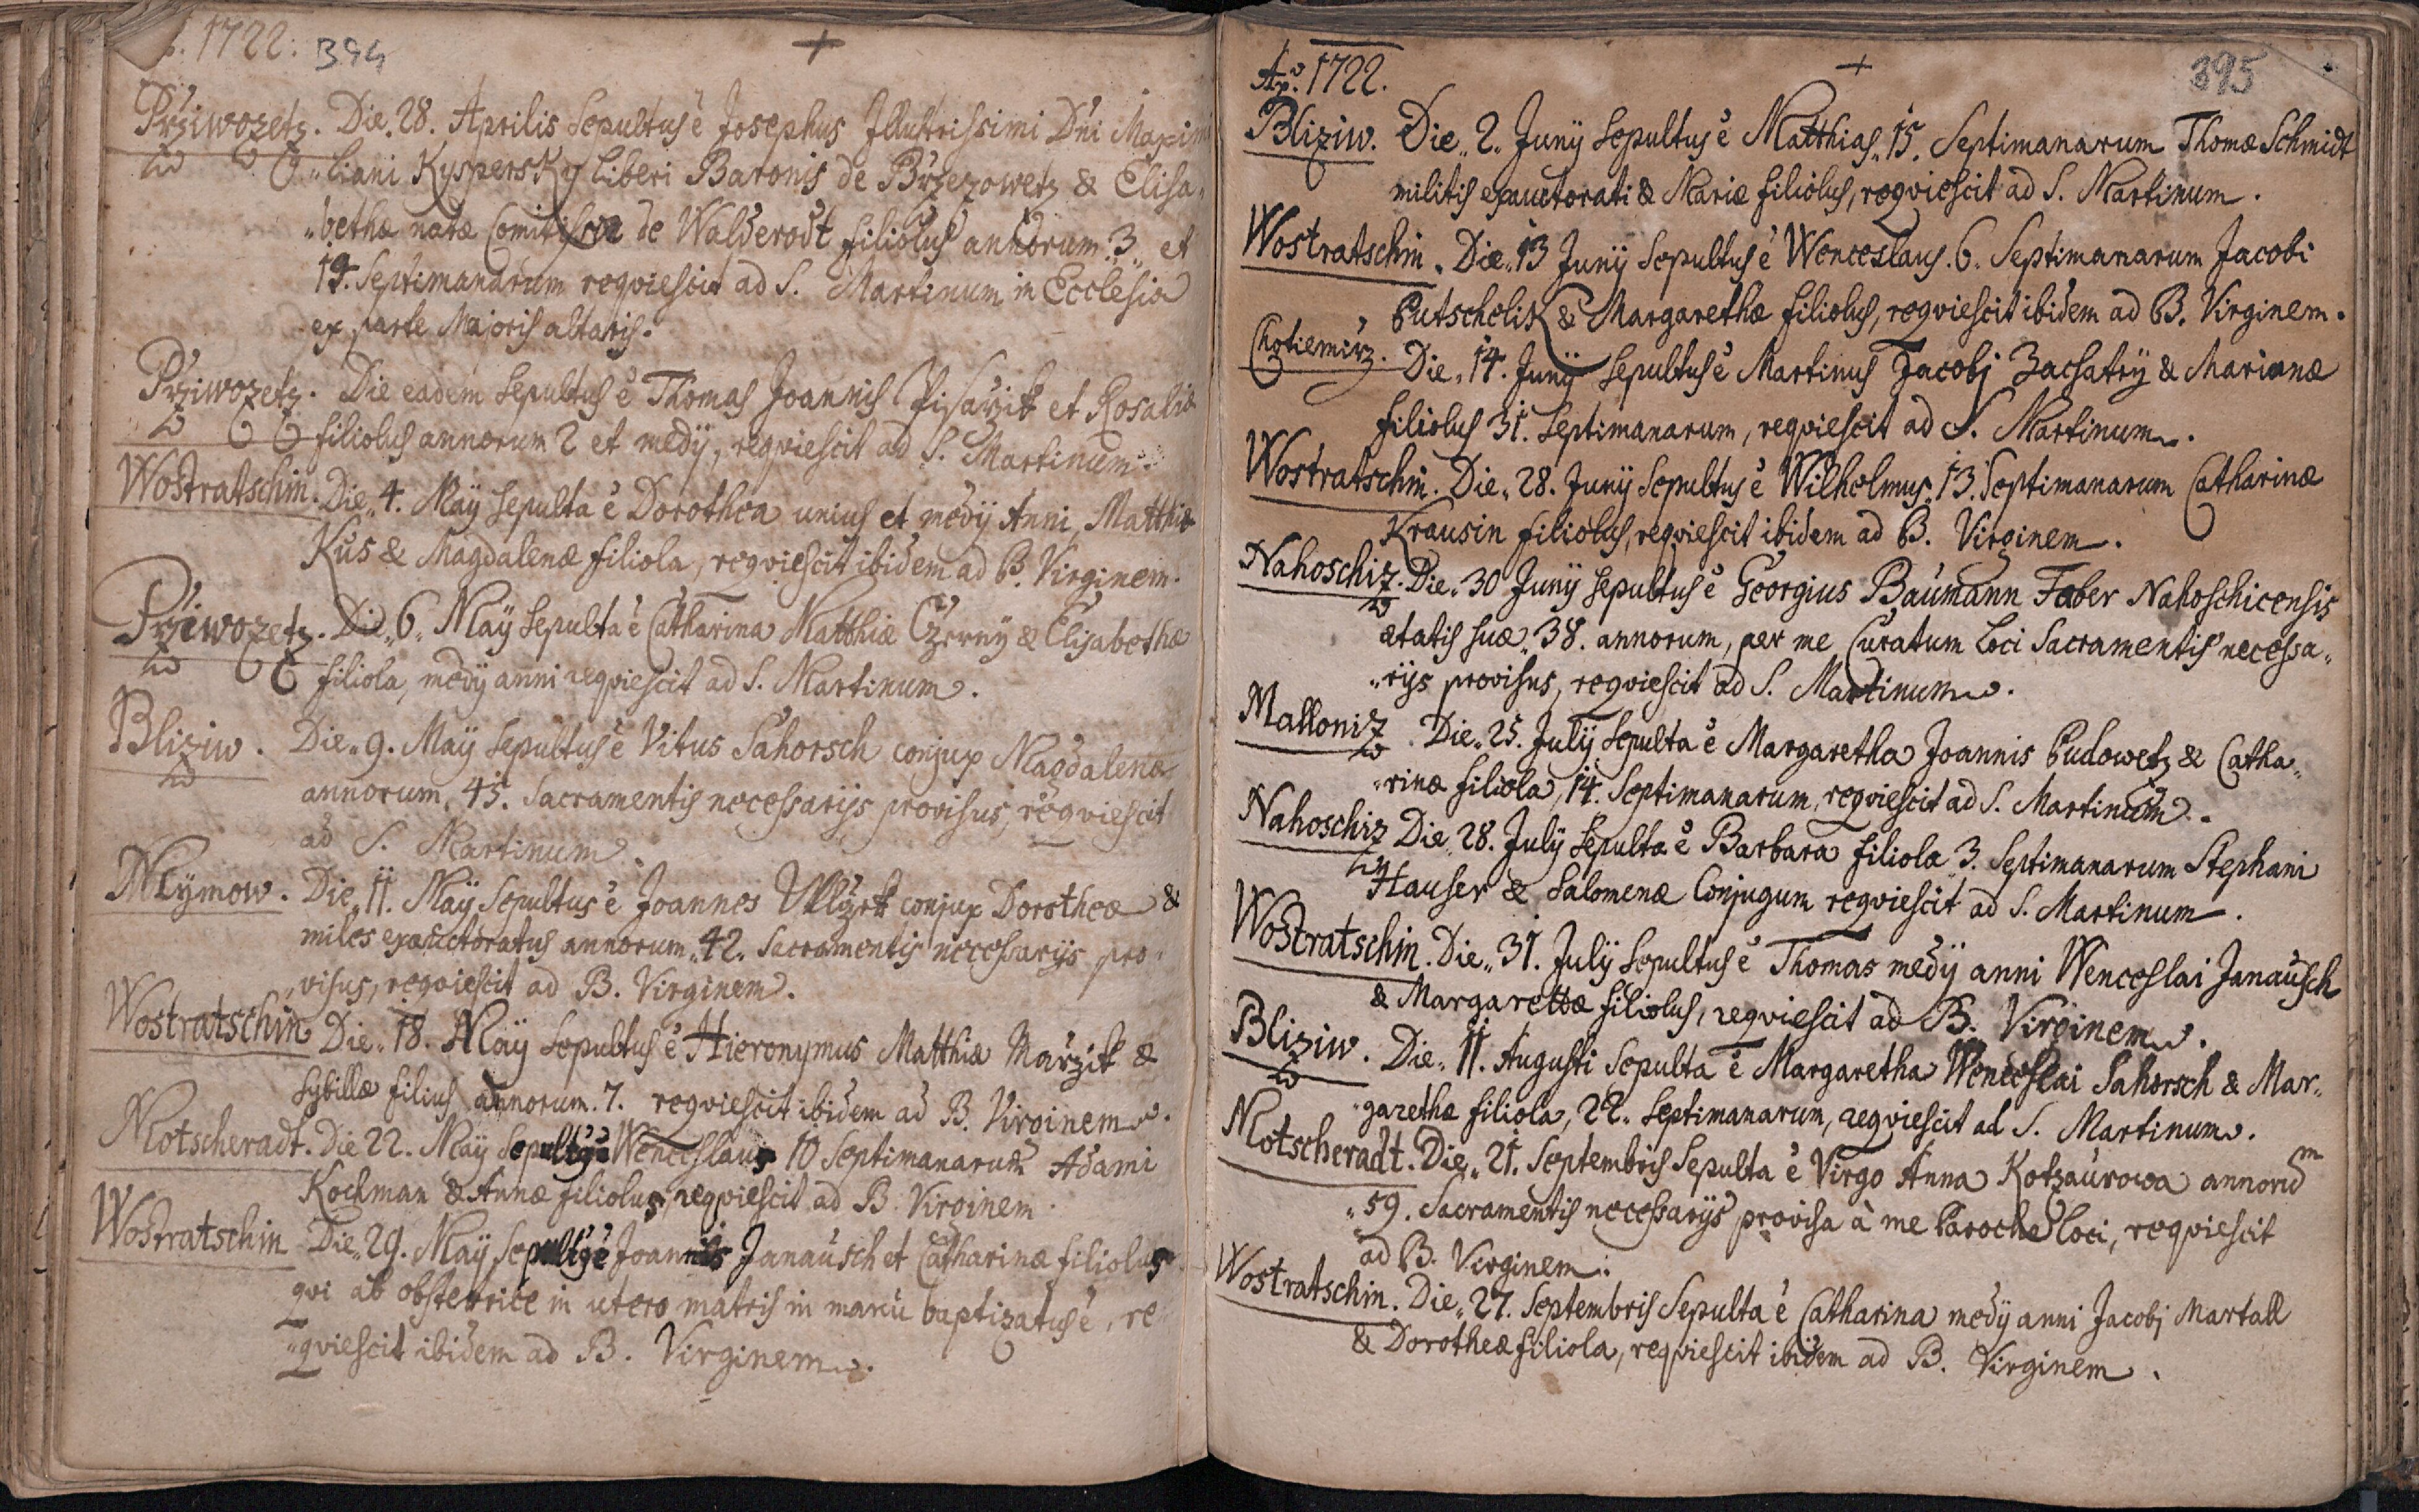 1722: 394
Přziwozetz. Die. 28. Aprilis Sepultus ē Josephus Illustrissimi D'ni Maximi
„liani KyspersKy Liberi Baronis de Brzezowetz & Elisa„
„bethæ natæ Comitissæ de Walderodt filiolus annorum 3„ et
19. Septimanarum reqviescit ad S. Martinum in Ecclesia
ex parte Majoris altaris.
Przÿwozetz. Die eadem Sepultus ē Thomas Joannis Pisařzik et Rosaliæ
filiolus annorum 2 et medÿ, reqviescit ad S. Martinum.
Wostratschin. Die„ 4. Maÿ Sepulta ē Dorothea unius et medÿ Anni, Matthiæ
Kus & Magdalenæ filiola, reqviescit ibidem ad B. Virginem.
Přziwozetz. Die„ 6„ Maÿ Sepulta ē Catharina Matthiæ Czerný & Elisabethæ
filiola, medÿ anni reqviescit ad S. Martinum.
Bliziw. Die„ 9. Maÿ Sepultus ē Vitus Sahorsch conjux Magdalenæ
annorum. 45. Sacramentis necessarijs provisus, reqviescit
ad S. Martinum.
Mlÿmow. Die„ 11. Maÿ Sepultus ē Joannes conjux Dorotheæ &
miles exauctoratus annorum„ 42. Sacramentis necessarijs pro„
„visus, reqviescit ad B. Virginem.
Wostratschin Die„ 18. Maÿ Sepultus ē Hieronymus Matthiæ Mařzik &
Sybillæ filius annorum. 7. reqviescit ibidem ad B. Virginem.
Motscheradt. Die 22. Maÿ Sepultus ē Wenceslaus 10 Septimanarum Adami
Kochman & Annæ filiolus, reqviescit ad B. Virginem.
Wostratschin Die„ 29. Maÿ Sepultus ē Joannis Janausch et Catharinæ filiolus
qvi ab obstetrice in utero matris in manu baptizatus ē, re„
„qviescit ibidem ad B. Virginem.
Aō. 1722. 395
Bliziw. Die„ 2. Junÿ Sepultus ē Matthias„ 15. Septimanarum Thomæ Schmidt
militis exauctorati & Mariæ filiolus, reqviescit ad S. Martinum.
Wostratschin. Die„ 13 Junÿ Sepultus ē Wenceslaus. 6. Septimanarum Jacobi
Putschelik & Margarethæ filiolus, reqviescit ibidem ad B. Virginem.
Chotiemirz. Die„ 14. Junÿ Sepultus ē Martinus Jacobj Zacsatrÿ & Marianæ
filiolus 31. Septimanarum, reqviescit ad S. Martinum.
Wostratschin. Die„ 28. Junÿ Sepultus ē Wilhelmus„ 13. Septimanarum Catharinæ
Krausin filiolus, reqviescit ibidem ad B. Virginem.
Nahoschiz. Die„ 30 Junÿ Sepultus ē Georgius Baumann Faber Nahoschicensis
ætatis suæ„ 38. annorum, per me Curatum Loci Sacramentis necessa„
„rijs provisus, reqviescit ad S. Martinum.
Malloniz. Die„ 25. Julÿ Sepulta ē Margaretha Joannis Pudowetz & Catha„
„rinæ filiola, 14. Septimanarum, reqviescit ad S. Martinum.
Nahoschiz Die„ 28. Julÿ Sepulta ē Barbara filiola 3. Septimanarum Stephani
Hauser & Salomenæ Conjugum reqviescit ad S. Martinum.
Wostratschin. Die„ 31. Julÿ Sepultus ē Thomas medÿ anni Wenceslai Janausch
& Margarettæ filiolus, reqviescit ad B. Virginem.
Bliziw. Die„ 11. Augusti Sepulta ē Margaretha Wenceslai Sahorsch & Mar„
garethæ filiola, 22„ Septimanarum, reqviescit ad S. Martinum.
Motscheradt. Die„ 21. Septembris Sepulta ē Virgo Anna Kotzaurowa annorum
„59. Sacramentis necessarÿs provisa à me Parocho Loci, reqviescit
ad B. Virginem.
Wostratschin. Die„ 27. Septembris Sepulta ē Catharina medÿ anni Jacobj Martall
& Dorotheæ filiola, reqviescit ibidem ad B. Virginem.